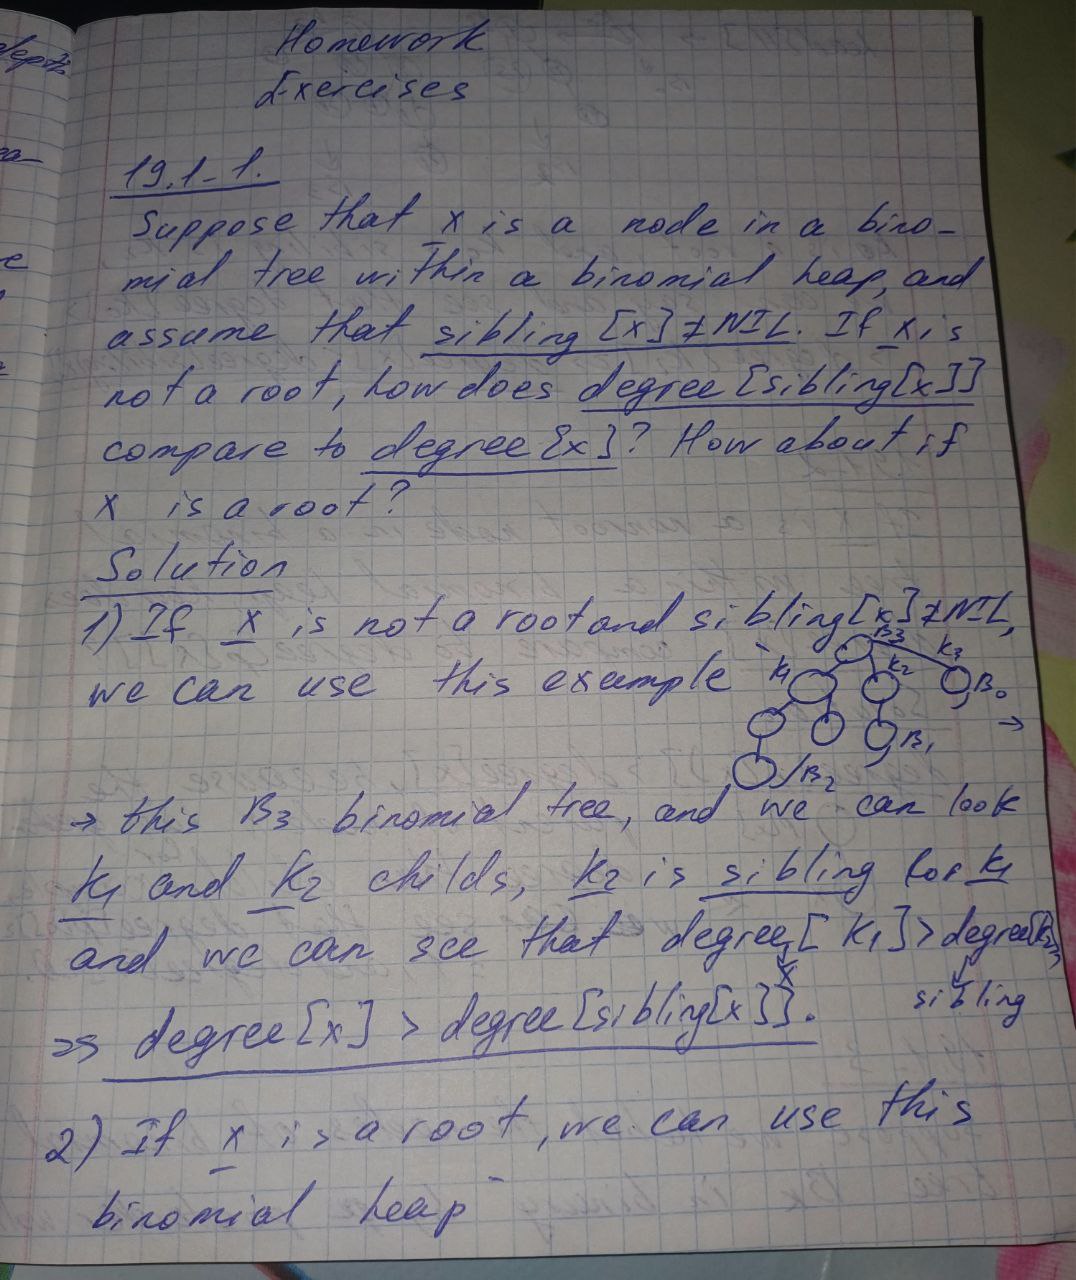 Homework
Exercises
19.1-1.
Suppose that x is a node in a bino-
mial tree within a binomial heap, and
assume that sibling [x] ≠ NIL. If x is
not a root, how does degree [sibling[x]]
compare to degree [x]? How about if
x is a root?
Solution
1) If x is not a root and sibling[x] ≠ NIL,
we can use this example
B3
K1 K2 K3
B0
B1
B2
→
→ this B3 binomial tree, and we can look
K1 and K2 childs, K2 is sibling for K1
and we can see that degree [K1] > degree[K2]
x sibling
=> degree [x] > degree [sibling[x]].
2) If x is a root, we can use this
binomial heap
depth